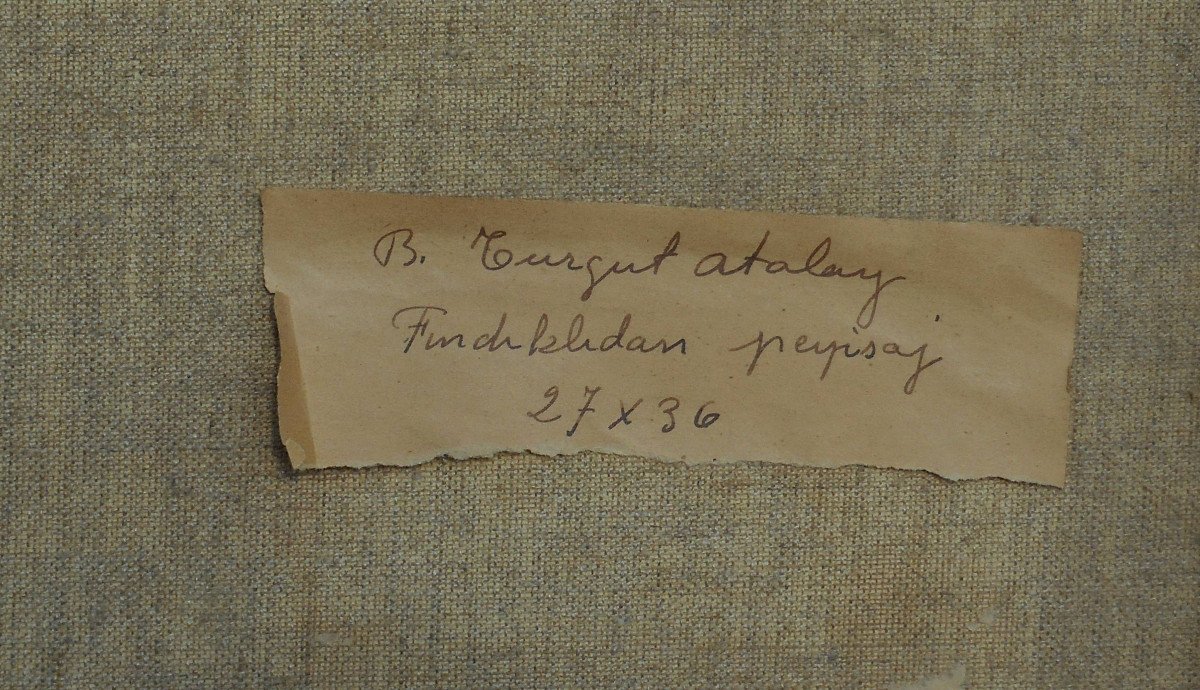 B. Turgut Atalay
Fındıklıdan peyisaj
27 x 36